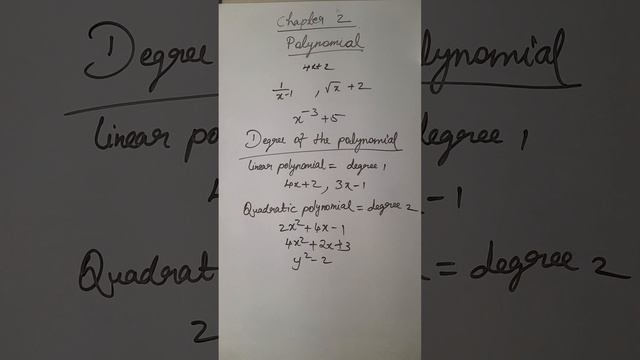 Chapter 2
Polynomial
4x+2
1/x-1 , √x + 2
x⁻³ + 5
Degree of the polynomial
linear polynomial = degree 1
4x+2 , 3x-1
Quadratic polynomial = degree 2
2x² + 4x - 1
4x² + 2x ± 3
y² - 2